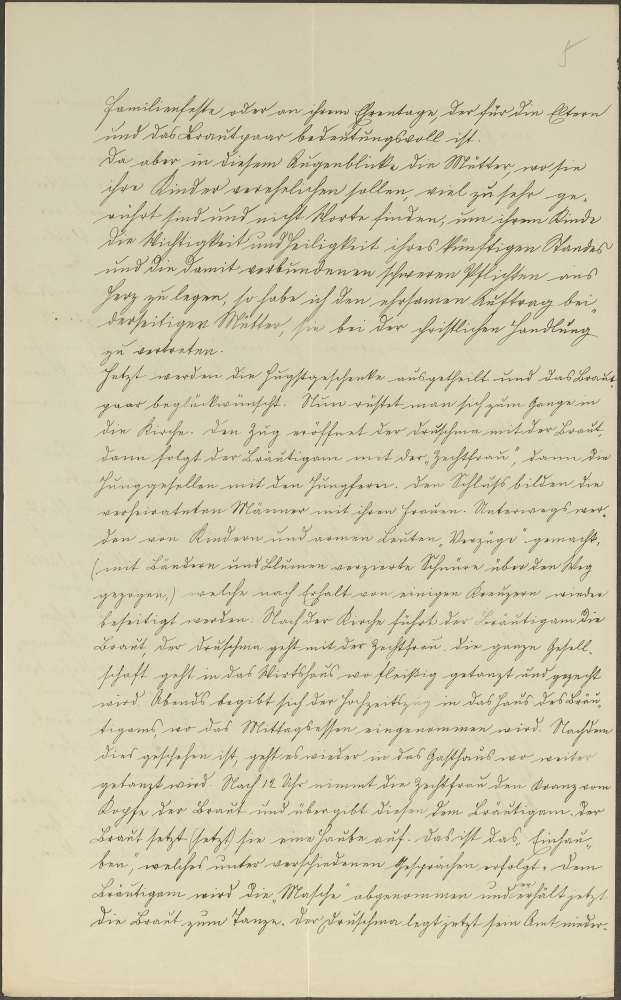 5
Familienfeste oder an ihrem Ehrentage, der für die Eltern
und das Brautpaar bedeutungsvoll ist.
Da aber in diesem Augenblicke die Mütter, wo sie
ihre Kinder verehelichen sollen, viel zu sehr ge-
rührt sind und nicht Worte finden, um ihrem Kinde
die Wichtigkeit und Heiligkeit ihres künftigen Standes
und die damit verbundenen schweren Pflichten ans
Herz zu legen, so habe ich den ehrsamen Auftrag bei-
derseitiger Mütter, sie bei der christlichen Handlung
zu vertreten.
Jetzt werden die geschenke ausgetheilt und das Braut-
paar beglückwünscht. Nun rüstet man sich zum Gange in
die Kirche. Den Zug eröffnet der Druschma mit der Braut,
dann folgt der Bräutigam mit der „Zechtfrau", dann die
Junggesellen mit den Jungfern. Den Schluß bilden die
verheirateten Männer mit ihren Frauen. Unterwegs wer-
den von Kindern und armen Leuten „Verzüge" gemacht,
(mit Bändern und Blumen verzierte Schnüre über den Weg
gezogen,) welche nach Erhalt von einigen Kreuzern wieder
beseitigt werden. Nach der Kirche führt der Bräutigam die
Braut, der Druschma geht mit der Zechtfrau. Die ganze Gesell-
schaft geht in das Wirtshaus wo fleißig getanzt und gezecht
wird. Abends begibt sich der Hochzeitszug in das Haus des Bräu-
tigams, wo das Mittagsessen eingenommen wird. Nachdem
dies geschehen ist, geht es wieder in das Gasthaus wo weiter
getanzt wird. Nach 12 Uhr nimmt die Zechtfrau den Kranz vom
Kopfe der Braut und übergibt diesen dem Bräutigam. Der
Braut setzt (setzt) sie eine Haube auf. Das ist das „Einhau-
ben", welches unter verschiedenen Gesprächen erfolgt. Dem
Bräutigam wird die „Masche" abgenommen und er erhält jetzt
die Braut zum Tanze. Der Druschma legt jetzt sein Amt nieder.